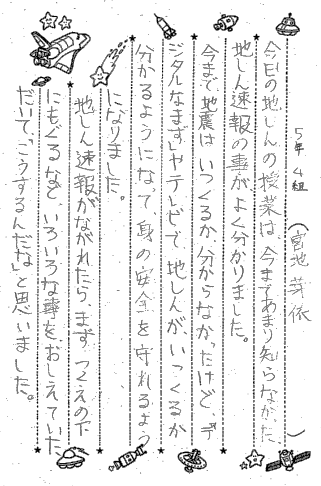 5年4組（宮地 芽依）
今日の地しんの授業は、今まであまり知らなかった、
地しん速報の事がよく分かりました。
今まで地震は、いつくるか、分からなかったけど、「デ
ジタルなまず」やテレビで、地しんが、いつくるか
分かるようになって、身の安全を守れるよう
になりました。
地しん速報がながれたら、まず、つくえの下
にもぐるなど、いろいろな事をおしえていた
だいて、「こうするんだな」と思いました。